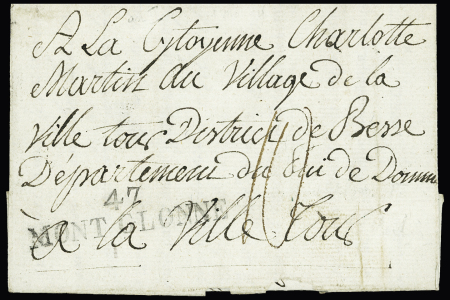 A La Cytoyenne Charlotte
Martin du Village de la
Ville tour District de Besse
Département du Pui de Domme
47
MONT GLONNE
A la Ville Tour